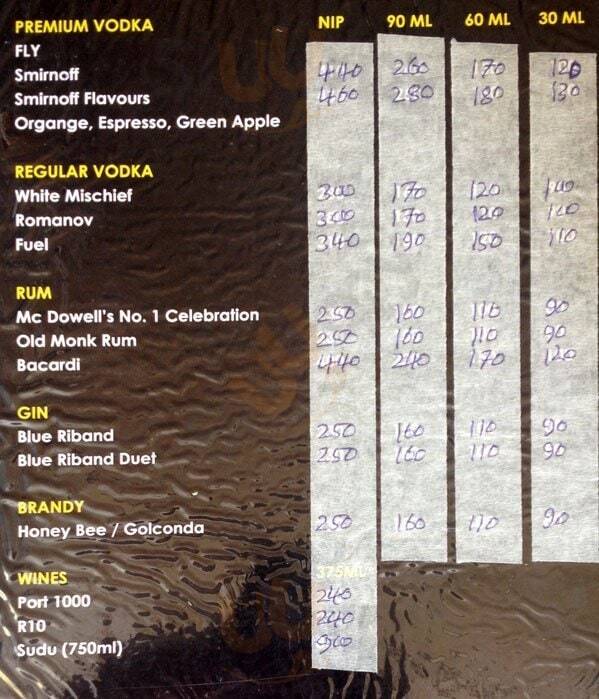 PREMIUM VODKA NIP 90 ML 60 ML 30 ML
FLY
Smirnoff 440 260 170 120
Smirnoff Flavours 460 280 180 130
Organge, Espresso, Green Apple
REGULAR VODKA
White Mischief 300 170 120
Romanov 300 170 120
Fuel 340 190 150 110
RUM
Mc Dowell's No. 1 Celebration 250 160 110 90
Old Monk Rum 250 160 110 90
Bacardi 440 240 170 120
GIN
Blue Riband 250 160 110 90
Blue Riband Duet 250 160 110 90
BRANDY
Honey Bee / Golconda 250 160 110 90
WINES 375ML
Port 1000 240
R10 240
Sudu (750ml)